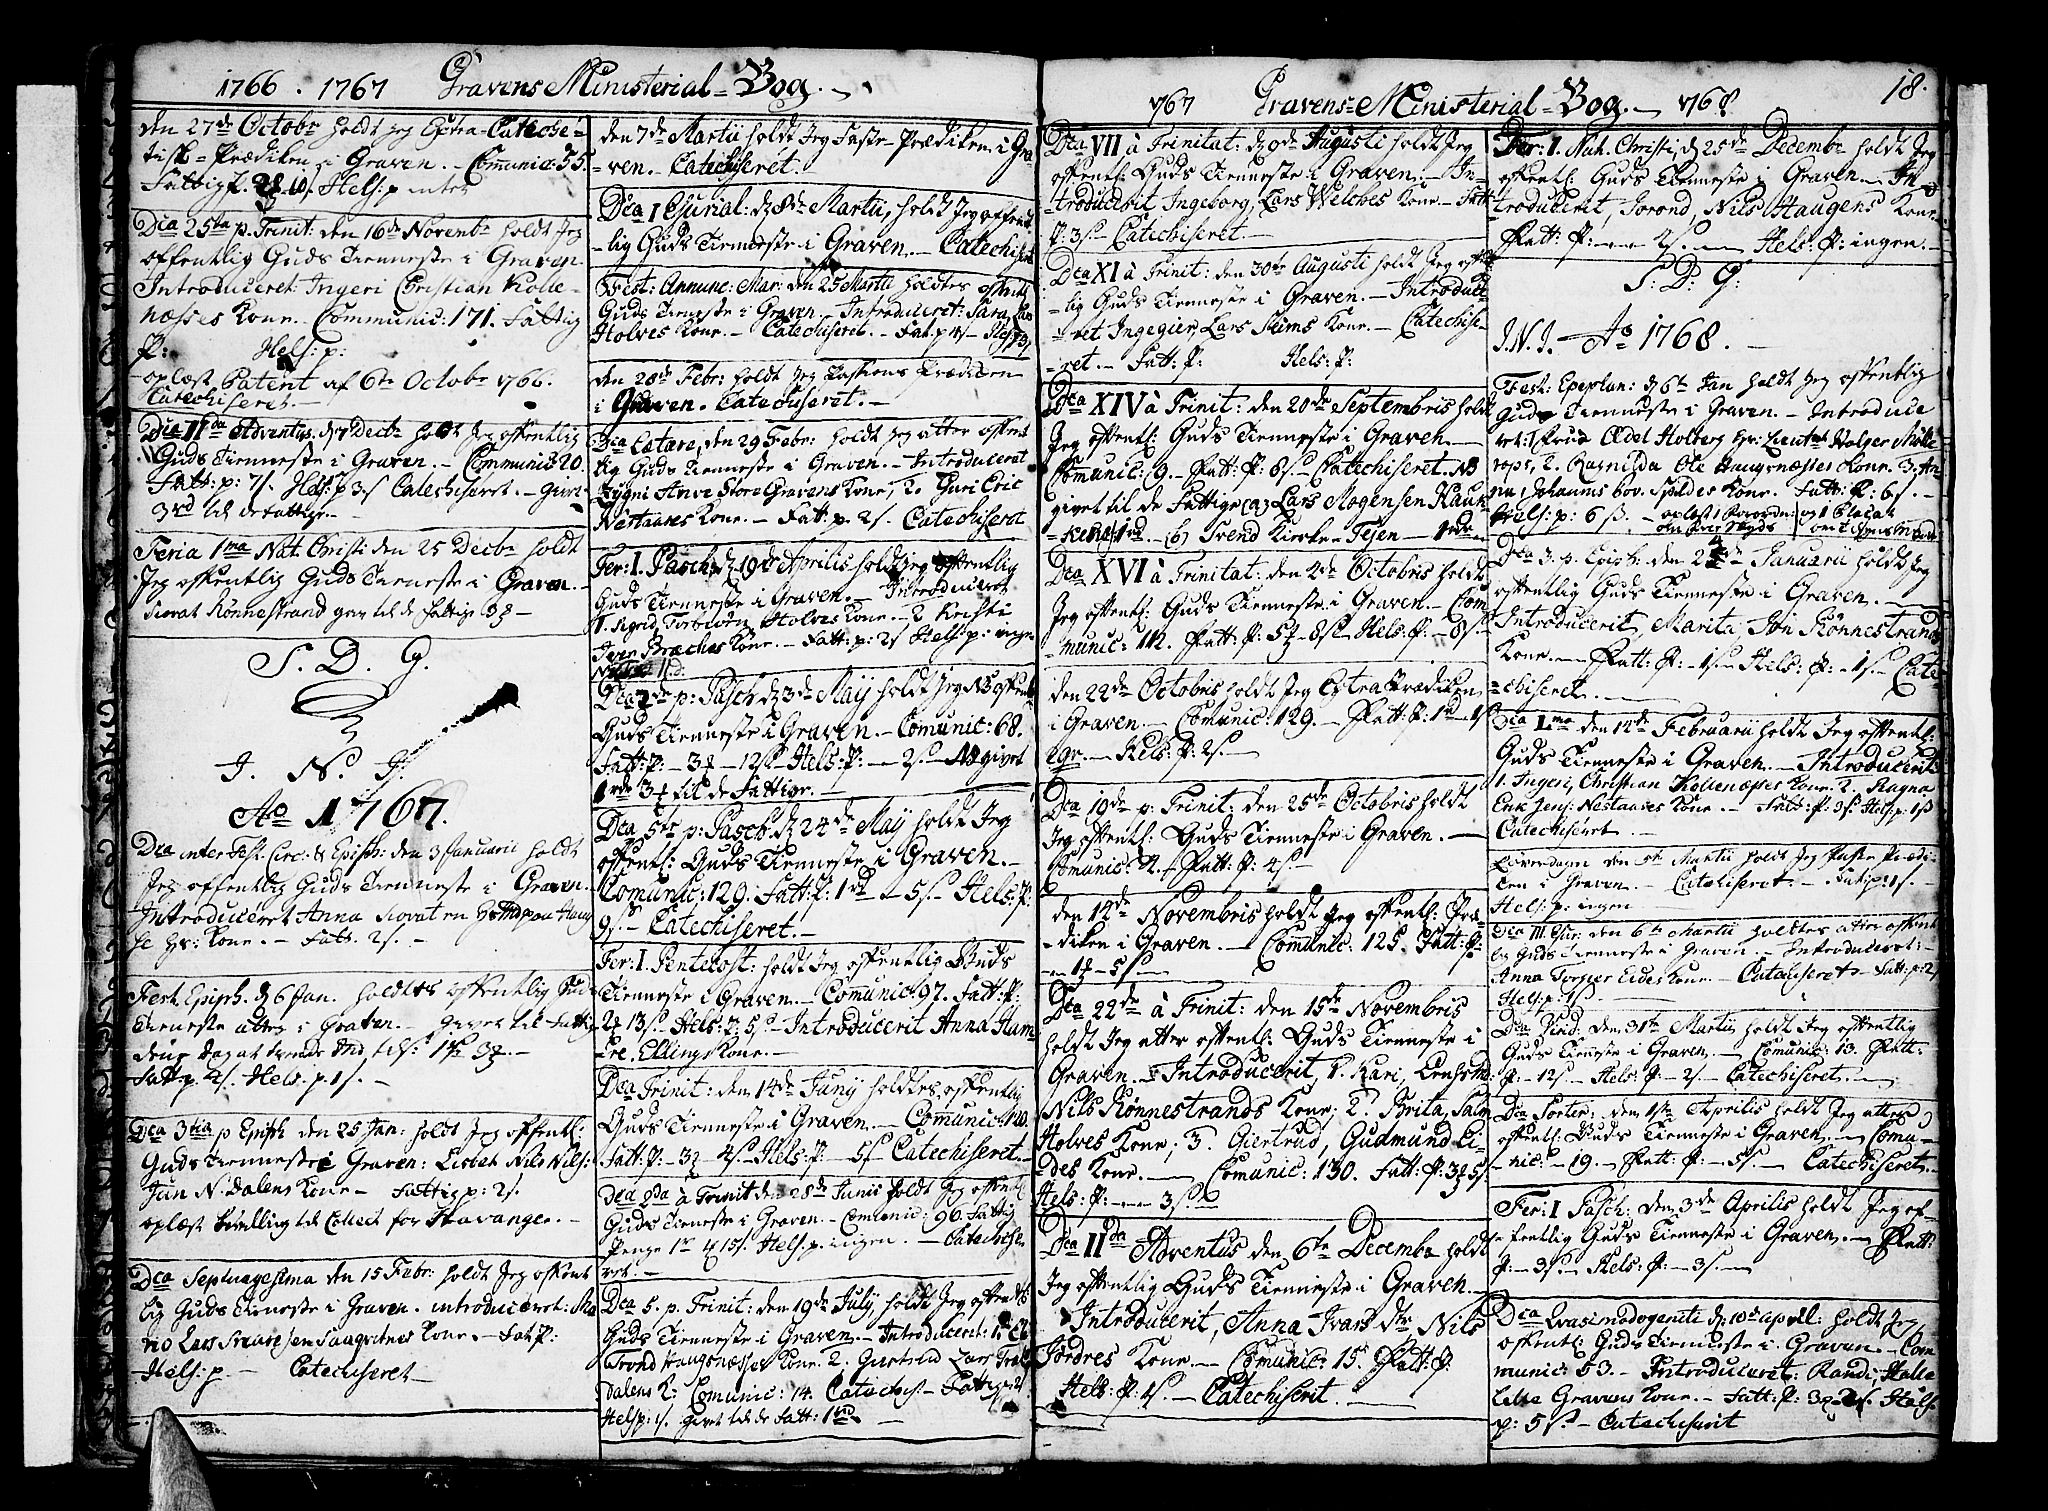 1766. 1767 Gravens Ministerial-Bog.
den 27de Octobr holdt Jeg Extra-Cateche-
tisk-Prædiken i Graven. Communic: 55.
Fattig p. Hels: p intet
Dca 25ta p. Trinit: den 16de Novembr holdt Jeg
offentlig Guds Tienneste i Graven
Introduceret Ingeri Christian Kolle-
næsses Kone. Communic: 171. Fattig
P: Hels: p:
oplæst Patent af 6te Octobr 1766.
Catechiseret.
Dca IIda Adventus, d 7 Decbr holdt Jeg offentlig
Guds Tienneste i Graven. Communic 20.
Fatt: p: 7s. Hels: p 3s Catechiseret.
3rd til de fattige.
Feria 1ma Nat. Christi den 25 Decbr holdt
Jeg offentlig Guds Tieneste i Graven.
Siovat Rønnestrand gav til de Fattige
S. D. G.
J. N. J.
Ao 1767.
Dca inter Fest. Circ: & Epiph: den 3 Januarii holdt
Jeg offentlig Guds Tienneste i Graven.
Introduceret Anna Siovat
Kone. Fatt. 2s.
Fest. Epiph. d 6 Jan. holdtes offentlig Guds
Tieneste i Graven. Givet til Fattig
Fatt: p. 4s. Hels. p. 1s.
Dca 3tia p Epiph den 25 Jan: holdt Jeg offentl:
Guds Tienneste i Graven: Lisbet Nils Nils:
N. Dalens Kone - Fattig p: 2s.
oplæst til Collect for Stavanger.
Dca Septuagesima den 15 Febr: holdt Jeg offent
lig Guds Tieneste i Graven. introduceret: Ma
Lars Kone. Fat P:
Hels: p. Catechiseret
den 7de Martii holdt Jeg Faste-Prædiken i Gra
-ven. Catechiseret.
Dca I Esurial: d 8de Martii, holdt Jeg offent
-lig Guds Tienneste i Graven. Catechiseret
Fest: Annunc: Mar: den 25 Martii holdtes offentlig
Guds Tieneste i Graven. Introduceret: Sara
Holves Kone. Catechiseret. Fat p
den 28de Febr: holdt Jeg Passions Prædiken
i Graven. Catechiseret.
Dca Lætare, den 29 Febr: holdt Jeg atter offent
lig Guds Tienneste i Graven. Introduceret
Store Gravens Kone, 2. Guri Eric
Nestaases Kone. Fatt: p. 2s. Catechiseret
Fer: I. Pasch: d 19de Aprilis holdt jeg offentlig
Guds Tienneste i Graven. Introduceret
1. Sigrid, Torbiørn Holves Kone. 2 Kristi
Iver Brækes Kone. Fatt: p: 2s Hels: p: ingen
Dca 2de p: Pasch d 3de Maij holdt Jeg offentl
Guds Tienneste i Graven. Comunic: 68.
Fatt: P: 3 12s Hels: P: 2s. givet
til de Fattige.
Dca 5te p: Pasch. d 24de Maij holdt Jeg
offentl: Guds Tienneste i Graven.
Comunic: 129. Fatt: P: 1rd 5s. Hels: P:
9s. Catechiseret.
Fer: I. Pentecost: holdt Jeg offentlig Guds
Tienneste i Graven. Comunic: 97. Fatt: P:
13s. Hels: P: 5s. Introducerit Anna Ham
re. Ellings Kone.
Dca Trinit: den 14de Junij holdtes offentlig
Guds Tienneste i Graven. Comunic: 120.
Fatt: P: 3 4s. Hels: P: 5s Catechiseret.
Dca 2da à Trinit den 28de Junii holdt Jeg offentl
Guds Tieneste i Graven. Comunic: 96. Fattig
Penge 15s. Hels: p. ingen. Catechise
ret.
Dca 5. p. Trinit: den 19de Julij holdt Jeg offentl
Guds Tienneste i Graven. Introducerit: 1.
Trond Haugsnæsses Kone. 2. Giertrud Lars
dalens K: Comunic: 14. Catechis. Fattig p
Hels p: 1s. Givet til de Fatt: 1rd
1767 Gravens-Ministerial-Bog. 1768. 18.
Dca VII à Trinitat: d 9de Augusti holdt Jeg
offentl: Guds Tienneste i Graven. In-
troducerit Ingeborg, Lars Welches Kone. Fatt
P: 3s. Catechiseret.
Dca XI à Trinit: den 30te Augusti holdt Jeg offent
lig Guds Tienneste i Graven. Introduce-
ret Ingegier, Lars Seims Kone. Catechise-
ret. Fatt: P: Hels: P:
Dca XIV à Trinit: den 20de Septembris holdt
Jeg offentl: Guds Tienneste i Graven.
Comunic: 9. Fatt: P: 8s. Catechiseret. NB
givet til de Fattige (a) Lars Mogensen Hauk-
1rd. (b) Svend Kirke-Tejen
Dca XVI à Trinitat: den 4de Octobris holdt
Jeg offentl: Guds Tienneste i Graven. Com
munic: 112. Fatt: P: 8s. Hels: P: 8s.
den 22de Octobris holdt Jeg Extra Prædiken
i Graven. Comunic: 129. Fatt: P: 1rd
Hels: P: 2s.
Dca 19de p: Trinit: den 25de Octobris holdt
Jeg offentl: Guds Tienneste i Graven.
Comunic: 2. Fatt: P: 4s.
den 14de Novembris holdt Jeg offentl: Præ-
diken i Graven. Comunic: 125. Fatt: P:
5s.
Dca 22de à Trinit: den 15de Novembris
holdt Jeg atter offentl: Guds Tienneste i
Graven. Introducerit, 1. Kari,
Nils Rønnestrands Kone; 2. Brita,
Holves Kone; 3. Giertrud, Gudmund Ei-
des Kone. Comunic: 130. Fatt: P:
Hels: P: 3s.
Dca IIda Adventus den 6te Decembr holdt
Jeg offentlig Guds Tienneste i Graven.
Introducerit, Anna Ivars dtr Nils
Jordres Kone. Comunic: 15. Fatt: P:
Hels: P. 1s. Catechiserit.
Fer: I. Nat. Christi, d 25de Decembr holdt Jeg
offentl: Guds Tienneste i Graven. In-
troducerit, Jorond, Nils Haugens Kone
Fatt: P: 2s. Hels: P: ingen.
S: D: G:
J. N. J. Ao 1768.
Fest: Epephan: d 6te Jan holdt Jeg offentlig
Guds Tienneste i Graven. Introduce
ret: 1 Frue Ædel Holberg Hr: Lieutnt Holger
2. Ragnilda Ole Haugsnæsses Kone. 3. An
na, Johannis Spildes Kone. Fatt: P: 6s.
Hels: p: 6 s. oplæst 1 Forordn: og 1 Placat
Dca 3. p. Epiph: den 24de Januarii holdt Jeg
offentlig Guds Tienneste i Graven.
Introducerit, Marita, Jøn Rønnestrands
Kone. Fatt: P: 1s. Hels: P: 1s. Cate-
chiseret.
Dca Lma den 14de Februarii holdt Jeg offentl:
Guds Tienneste i Graven. Introducerit
1. Ingeri, Christian Kollenæsses Kone. 2. Ragna
Erik Jens: Nestaases Kone. Fatt: P: 3s. Hels: p. 1s
Catechiseret.
Løverdagen den 5te Martii holdt Jeg Faste Prædi-
ken i Graven. Catechiseret. Fatt p: 1s.
Hels: p: ingen
Dca III. Esur: den 6te Martii holdtes atter offent
lig Guds Tienneste i Graven. Introduceret:
Anna Torger Eides Kone. Catechiseret. Fatt: p: 2s
Hels: p: 1s.
Dca Jud: den 31te Martii holdt Jeg offentlig
Guds Tienneste i Graven. Comunic: 13. Fatt:
P: 12s. Hels: P: 2s. Catechiseret.
Dca den 1ste Aprilis holdt Jeg atter
offentl: Guds Tienneste i Graven. Comu-
nic: 19. Fatt: P: 5s. Catechiseret.
Fer: I Pasch: den 3de Aprilis holdt Jeg of-
fentlig Guds Tienneste i Graven. Fatt:
P: 3s. Hels: P: 3s.
Dca Qvasimodogeniti d 10de April: holdt Jeg
offentl: Guds Tienneste i Graven. Com
munic: 53. Introduceret: Randi, Halle
Lille Gravens Kone. Fatt: P: Hels:
p: 5s. Catechiserit